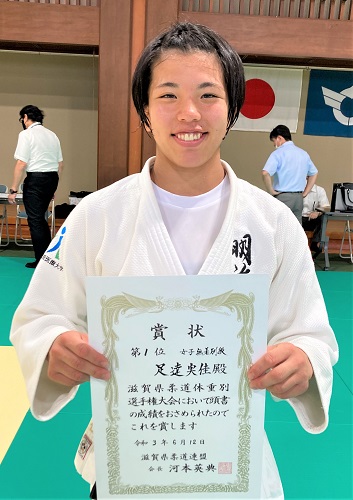 賞状
第1位 女子無差別級
足達実佳殿
滋賀県柔道体重別
選手権大会において頭書
の成績をおさめられたので
これを賞します
令和3年6月12日
滋賀県柔道連盟
会長 河本英典